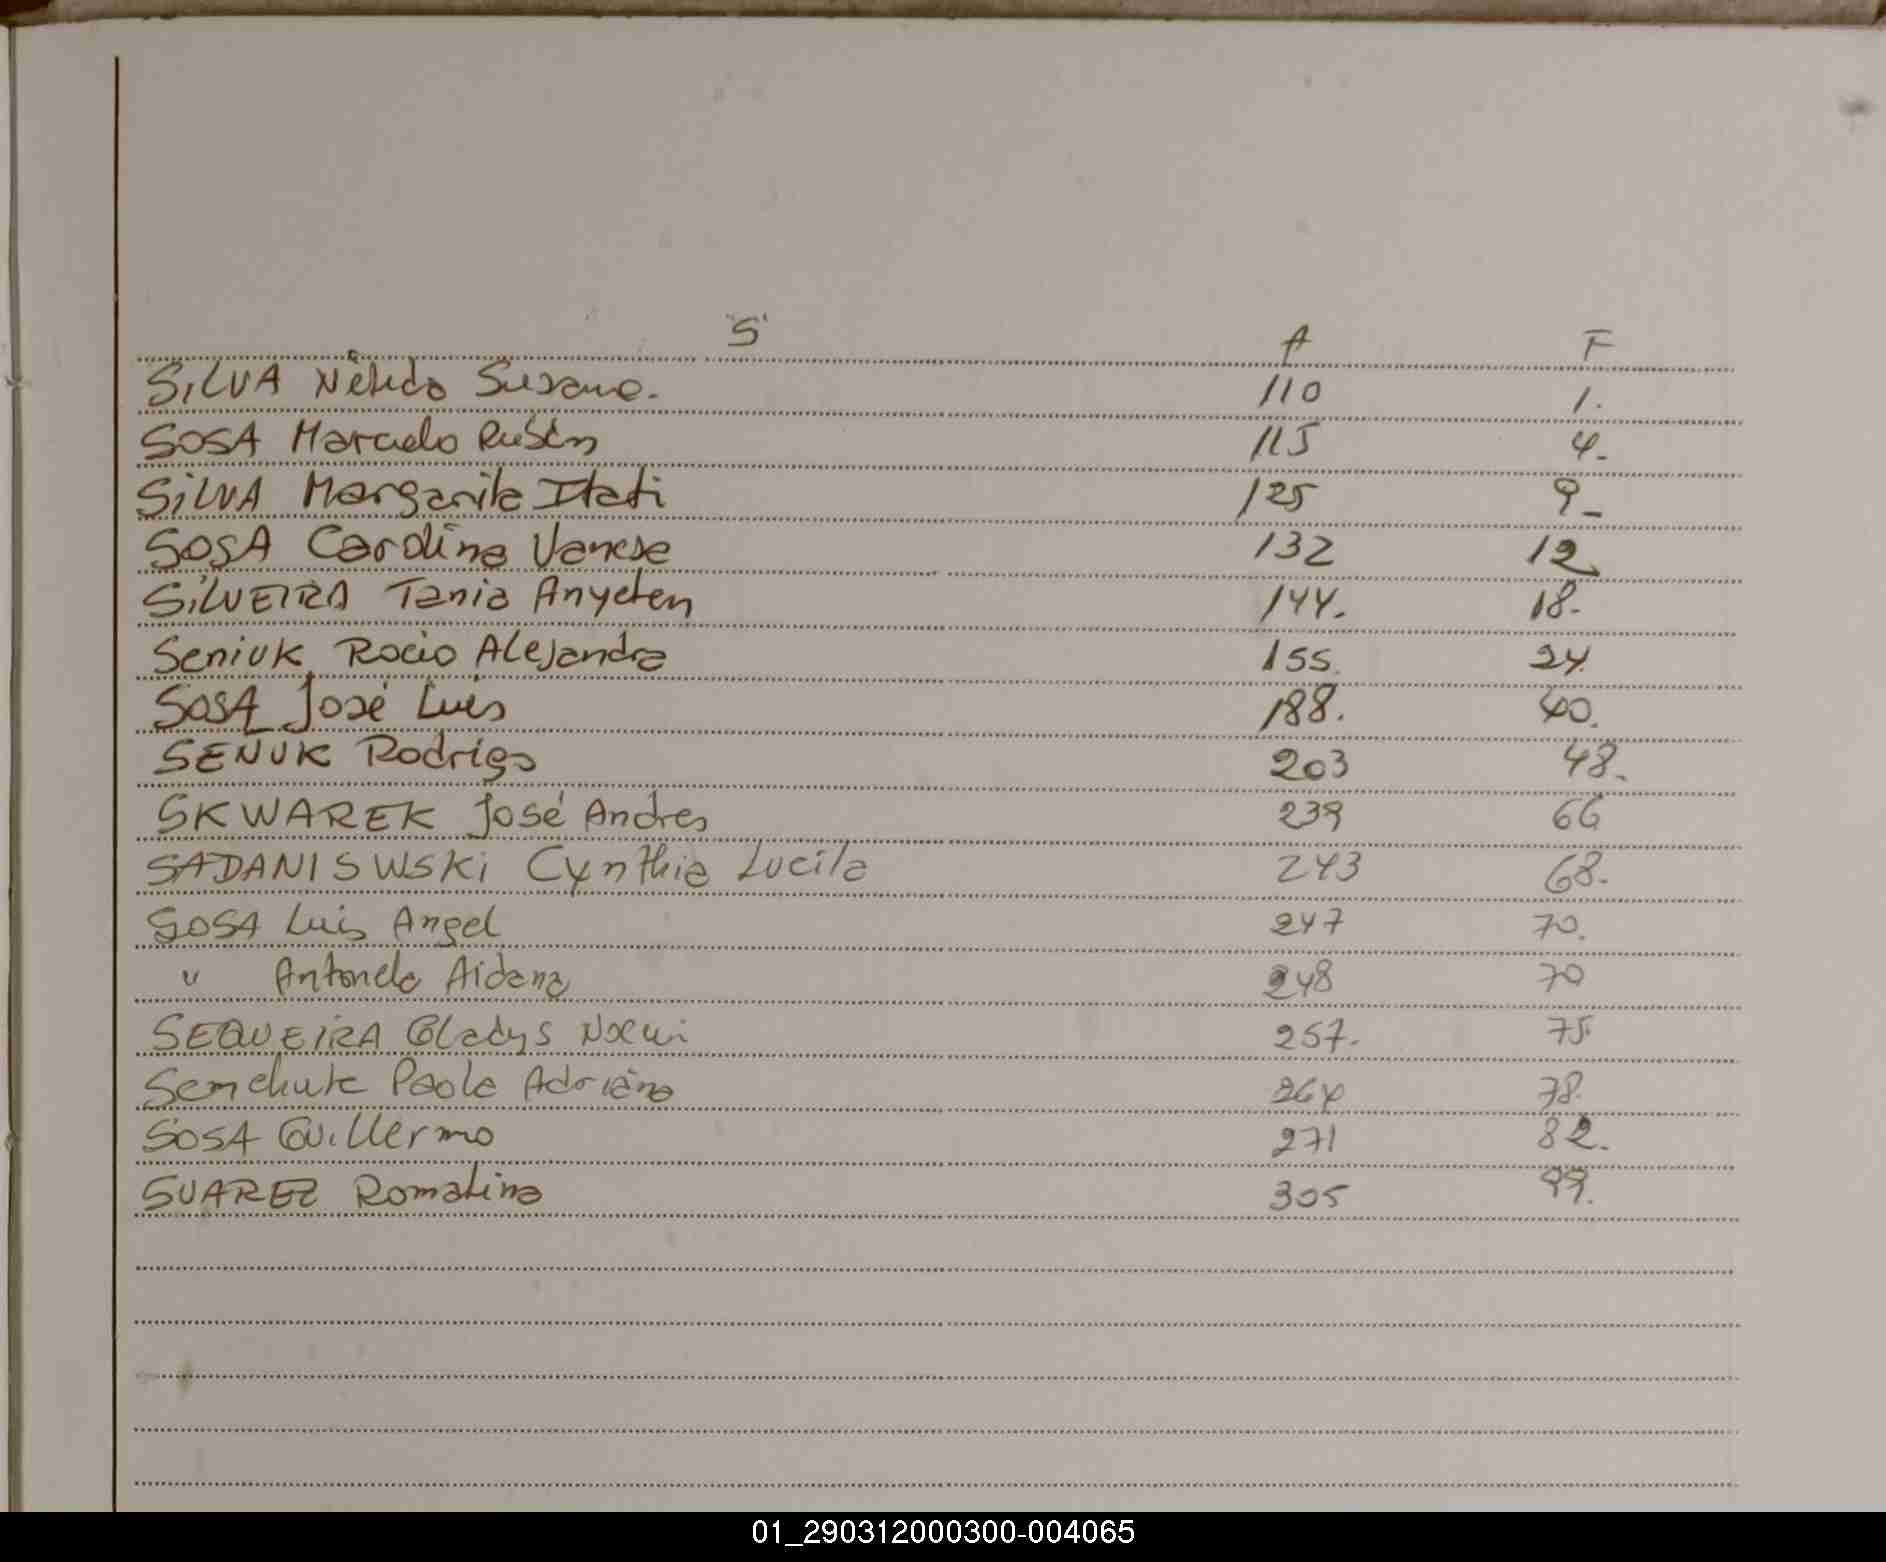 "S" A F
SILVA Nélida Susana. 110 1.
SOSA Marcelo Rubén 115 4.
SILVA Margarita Itati 125 9_
SOSA Carolina Vanesa 132 12
SILVEIRA Tania Anyelen 144. 18.
Seniuk Rocio Alejandra 155. 24.
SOSA José Luis 188. 40.
SENUK Rodrigo 203 48.
SKWAREK José Andres 239 66
SADANISWSKi Cynthia Lucila 243 68.
SOSA Luis Angel 247 70.
" Antonela Aidana 248 70
SEQUEIRA Gladys Noemi 257. 75.
Semchuk Paola Adriana 264 78.
SOSA Guillermo 271 82.
SUAREZ Romalina 305 99.
01_290312000300-004065